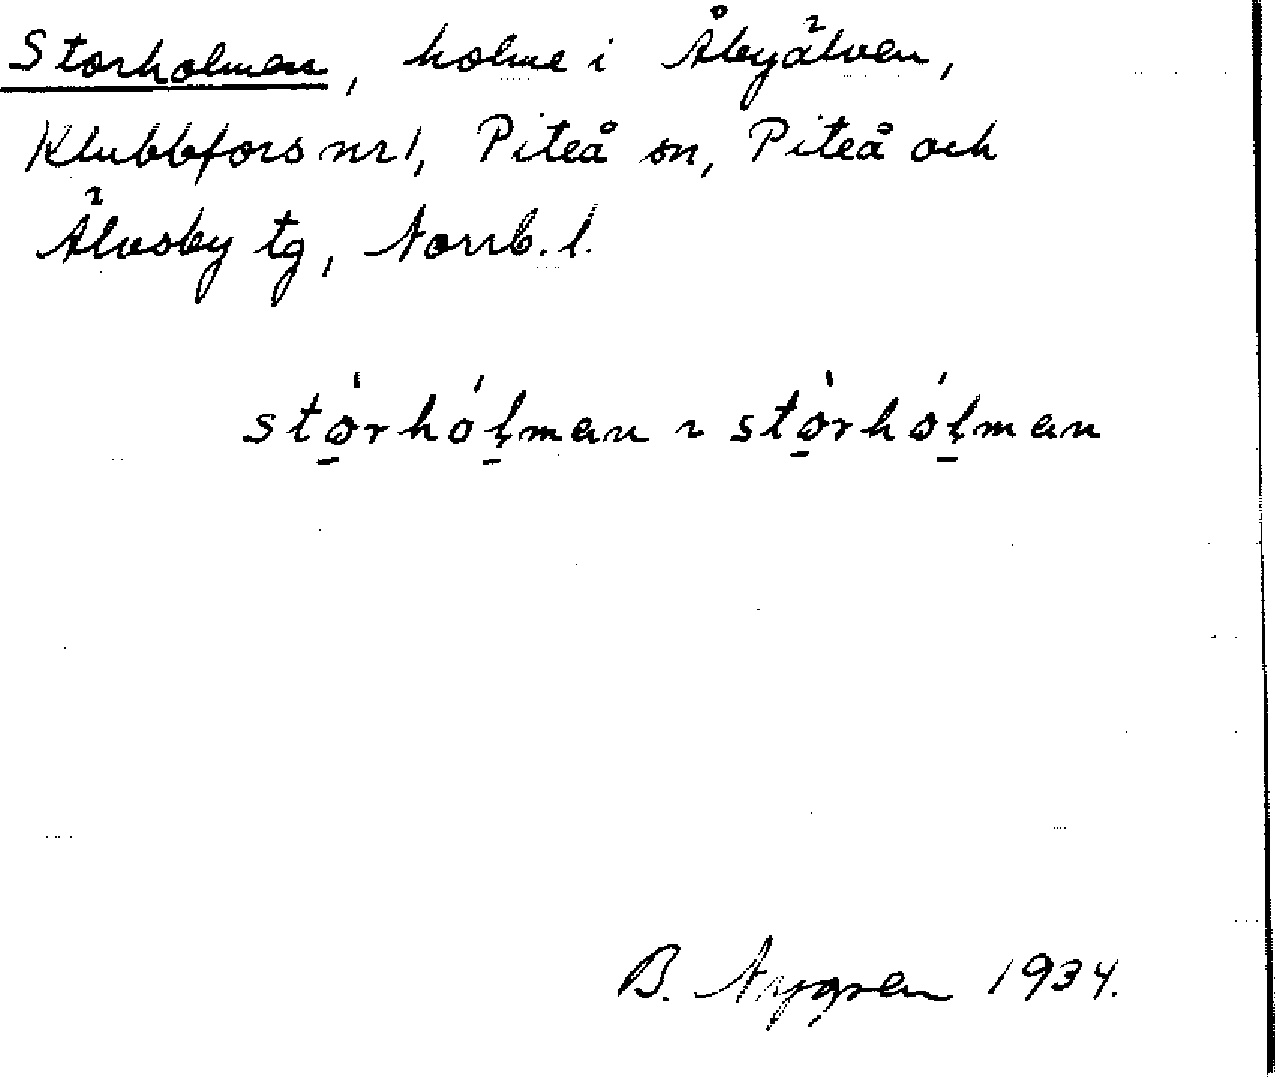 Storholmen, holme i Åbyälven,
Klubbfors nr 1, Piteå sn, Piteå och
Älvsby tg, Norrb. l.
stòrhólman ~ stòrhólman
B. Nygren 1934.